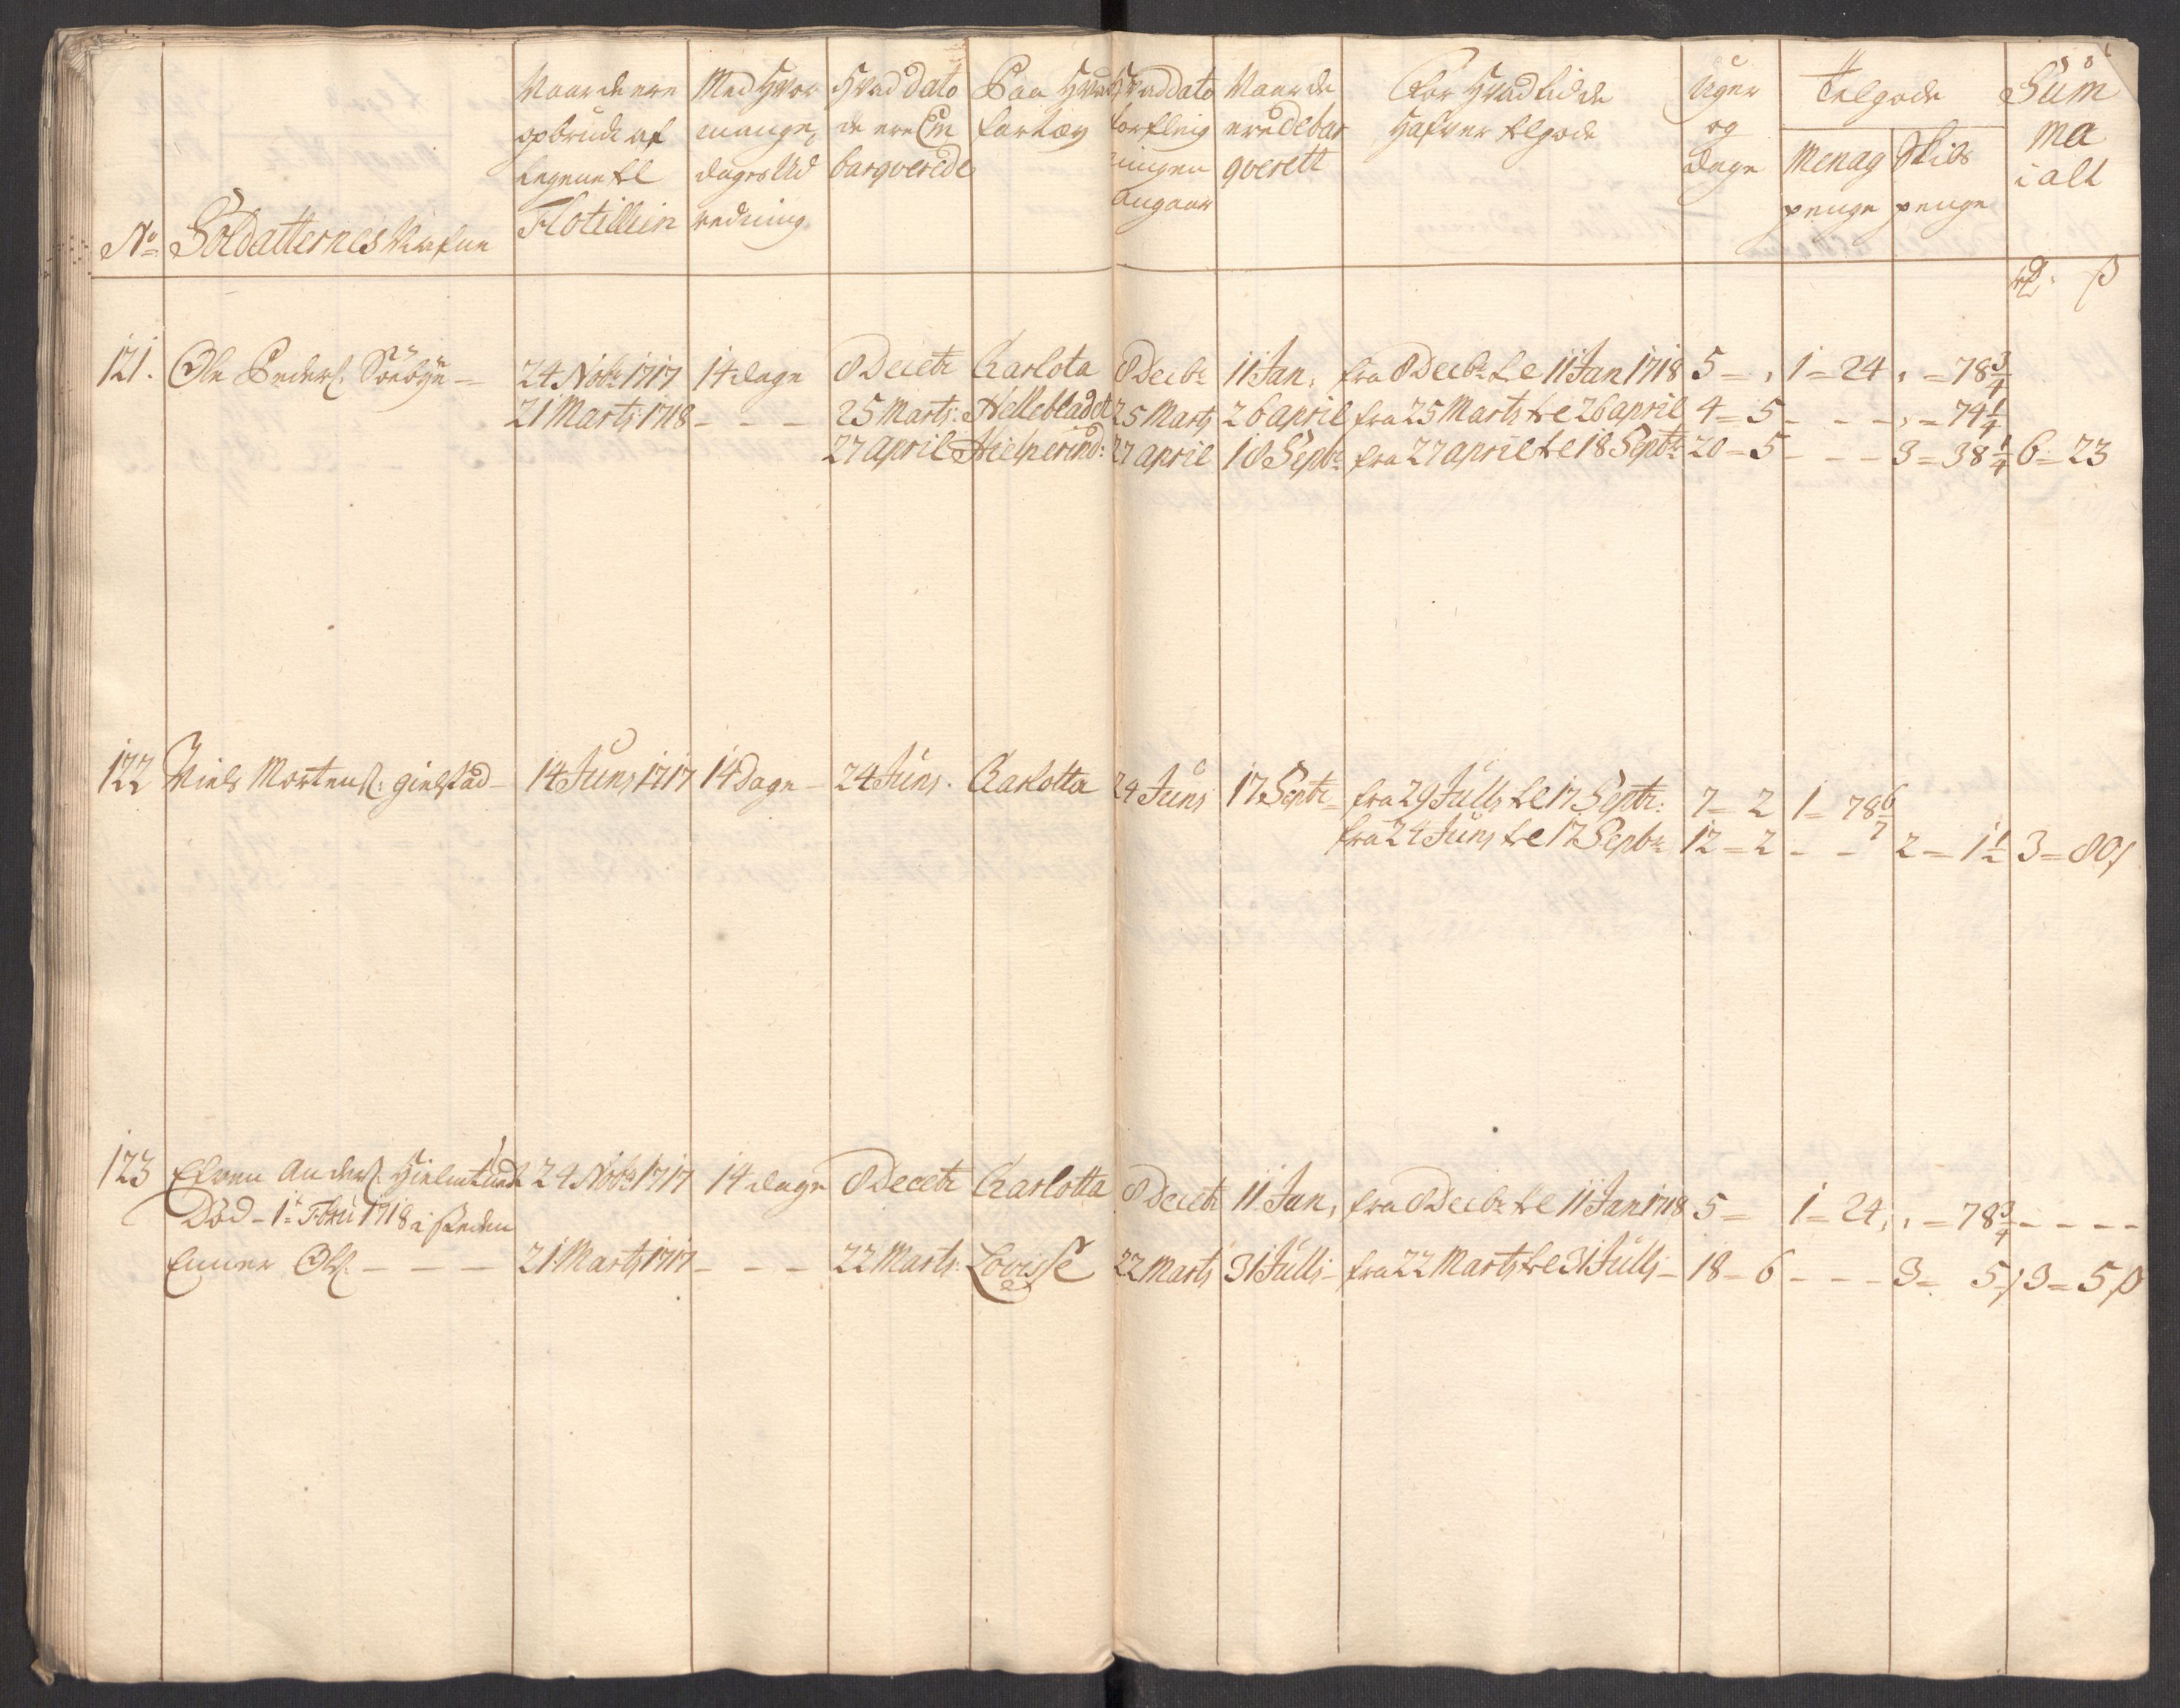 No Soldatternes Nafne
Naar de ere opbrudt af Legene til Flotillien
Med Hvor mange dages Ud redning
Hvad dato de ere Em barqverede
Paa Hvad fartøy
Hvad dato forfleig ningen angaar
Naar de ere debar qverett
For Hvad tid de Hafver tilgode
Uger og dage
Tilgode
Menag penge
Skibs penge
Sum ma i alt
rd. ß
121. Ole Peders. Soebye 24 Nobr 1717 14 dage 8 Decetr Carlota 8 Decbr 11 Jan. fra 8 Decbr til 11 Jan 1718 5 = , 1 = 24 , = 78 3/4
21 Marts 1718 - - - 25 Marts. Hellebladet 25 Marts 26 april fra 25 Marts til 26 april 4 = 5 - - - , = 74 1/4
27 april Hielperind: 27 april 18 Sepbr fra 27 april til 18 Septbr 20 = 5 - - - 3 = 38 1/4 6 = 23
122 Niels Mortens. gielstad - 14 Junj 1717 14 Dage - 24 Junj. Carlotta 24 Junj 17 Septr fra 29 Julli til 17 Septr: 7 = 2 1 = 78 6/7
fra 24 Junj til 17 Sepbr 12 = 2 - - 2 = 1 1/2 3 = 80
123 Efven Anders. Hielmtvedt 24 Nobr 1717 14 dage 8 Decetr Carlotta 8 Decetr 11 Jan, fra 8 Decbr til 11 Jan 1718 5 = 1 = 24, , = 78 3/4 - - - -
Död - 1te Febru 1718 i steden
Ols. - - - 21 Marts 1717 - - - 22 Marts. Lovisse 22 Marts 31 Julli - fra 22 Marts til 31 Julli - 18 = 6 - - - 3 = 5 3 = 5 ß